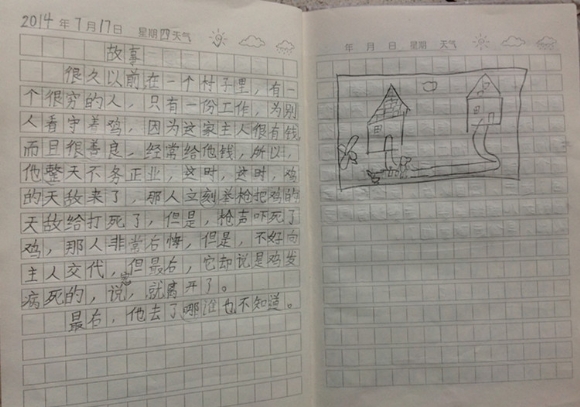 2014年7月17日 星期四天气
故事
很久以前在一个村子里，有一
个很穷的人，只有一份工作，为别
人看守养鸡，因为这家主人很有钱
而且很善良，经常给他钱，所以，
他整天不务正业，这时，这时，鸡
的天敌来了，那人立刻举枪把鸡的
天敌给打死了，但是，枪声吓死了
鸡，那人非常后悔，但是，不好向
主人交代，但最后，它却说是鸡发
病死的，说，就离开了。
最后，他去了哪谁也不知道。
年 月 日 星期 天气